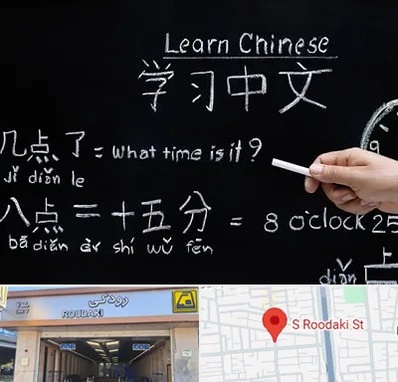 Learn Chinese
学习中文
几点了 = What time is it?
Jǐ diǎn le
八点二十五分 = 8 o'clock 25
bā diǎn èr shí wǔ fēn
diǎn
9
رودکی
ROUDAKI
S Roodaki St